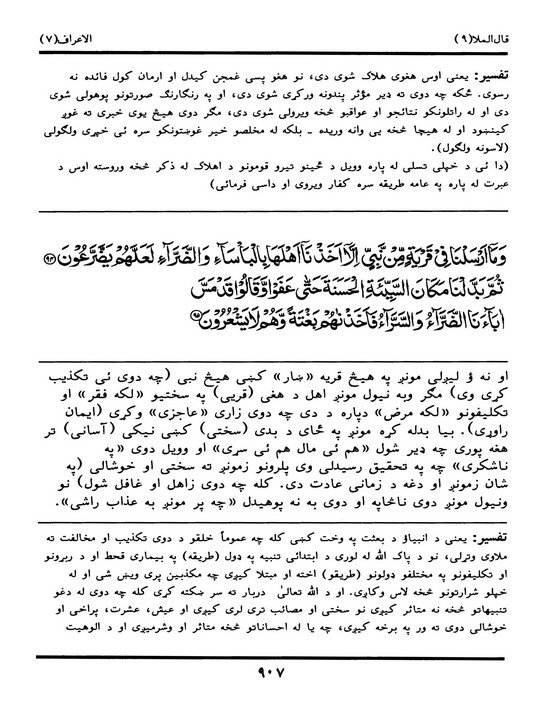 قال الملا(۹)
الاعراف(۷)
تفسیر: یعنی اوس هغوی هلاک شوی دی، نو هغو پسی غمجن کیدل او ارمان کول فائده نه
رسوی. ځکه چه دوی ته ډیر مؤثر پندونه ورکړی شوی دی، او په رنگارنگ صورتونو پوهولی شوی
دی او له راتلونکو نتائجو او عواقبو څخه ویرولی شوی دی، مگر دوی هیڅ یوی خبری ته غوږ
کینښود او له هیچا څخه یی وانه وریده ـ بلکه له مخلصو خیر غوښتونکو سره ئی خپری ولگولی
(لاسونه ولگول).
(دا ئی د خپلی تسلی له پاره وویل د ځینو تیرو قومونو د اهلاک له ذکر څخه وروسته اوس د
عبرت له پاره په عامه طریقه سره کفار ویروی او داسی فرمائی)
وَمَآ اَرۡسَلۡنَا فِیۡ قَرۡیَةٍ مِّنۡ نَّبِیٍّ اِلَّاۤ اَخَذۡنَاۤ اَهۡلَهَا بِالۡبَاۡسَآءِ وَالضَّرَّآءِ لَعَلَّهُمۡ یَضَّرَّعُوۡنَ ﴿۹۴﴾
ثُمَّ بَدَّلۡنَا مَکَانَ السَّیِّئَةِ الۡحَسَنَةَ حَتّٰی عَفَوۡا وَّقَالُوۡا قَدۡ مَسَّ
اٰبَآءَنَا الضَّرَّآءُ وَالسَّرَّآءُ فَاَخَذۡنٰهُمۡ بَغۡتَةً وَّهُمۡ لَا یَشۡعُرُوۡنَ ﴿۹۵﴾
او نه ؤ لیږلی مونږ په هیڅ قریه «ښار» کښی هیڅ نبی (چه دوی ئی تکذیب
کړی وی) مگر وبه نیول مونږ اهل د هغی (قریی) په سختیو «لکه فقر» او
تکلیفونو «لکه مرض» دپاره د دی چه دوی زاری «عاجزی» وکړی (ایمان
راوړی). بیا بدله کړه مونږ په ځای د بدی (سختی) کښی نیکی (آسانی) تر
هغه پوری چه ډیر شول «هم ئی مال هم ئی سړی» او وویل دوی «په
ناشکری» چه په تحقیق رسیدلی وی پلرونو زمونږ ته سختی او خوشالی (په
شان زمونږ او دغه د زمانی عادت دی. کله چه دوی زاهل او غافل شول) نو
ونیول مونږ دوی ناڅاپه او دوی به نه پوهیدل «چه پر مونږ به عذاب راشی».
تفسیر: یعنی د انبیاؤ د بعثت په وخت کښی کله چه عموماً خلقو د دوی تکذیب او مخالفت ته
ملاوی وتړلی، نو د پاک الله له لوری د ابتدائی تنبیه په ډول (طریقه) په بیماری قحط او د ربړونو
او تکلیفونو په مختلفو ډولونو (طریقو) اخته او مبتلا کیږی چه مکذبین پری ویښ شی او له
خپلو شرارتونو څخه لاس وکاږی. او د الله تعالیٰ دربار ته سر ښکته کړی کله چه دوی له دغو
تنبیهاتو څخه نه متاثر کیږی نو سختی او مصائب تری لری کیږی او عیش، عشرت، پراخی او
خوشالی دوی ته ور په برخه کیږی، چه یا له احساناتو څخه متاثر او وشرمیږی او د الوهیت
۹۰۷